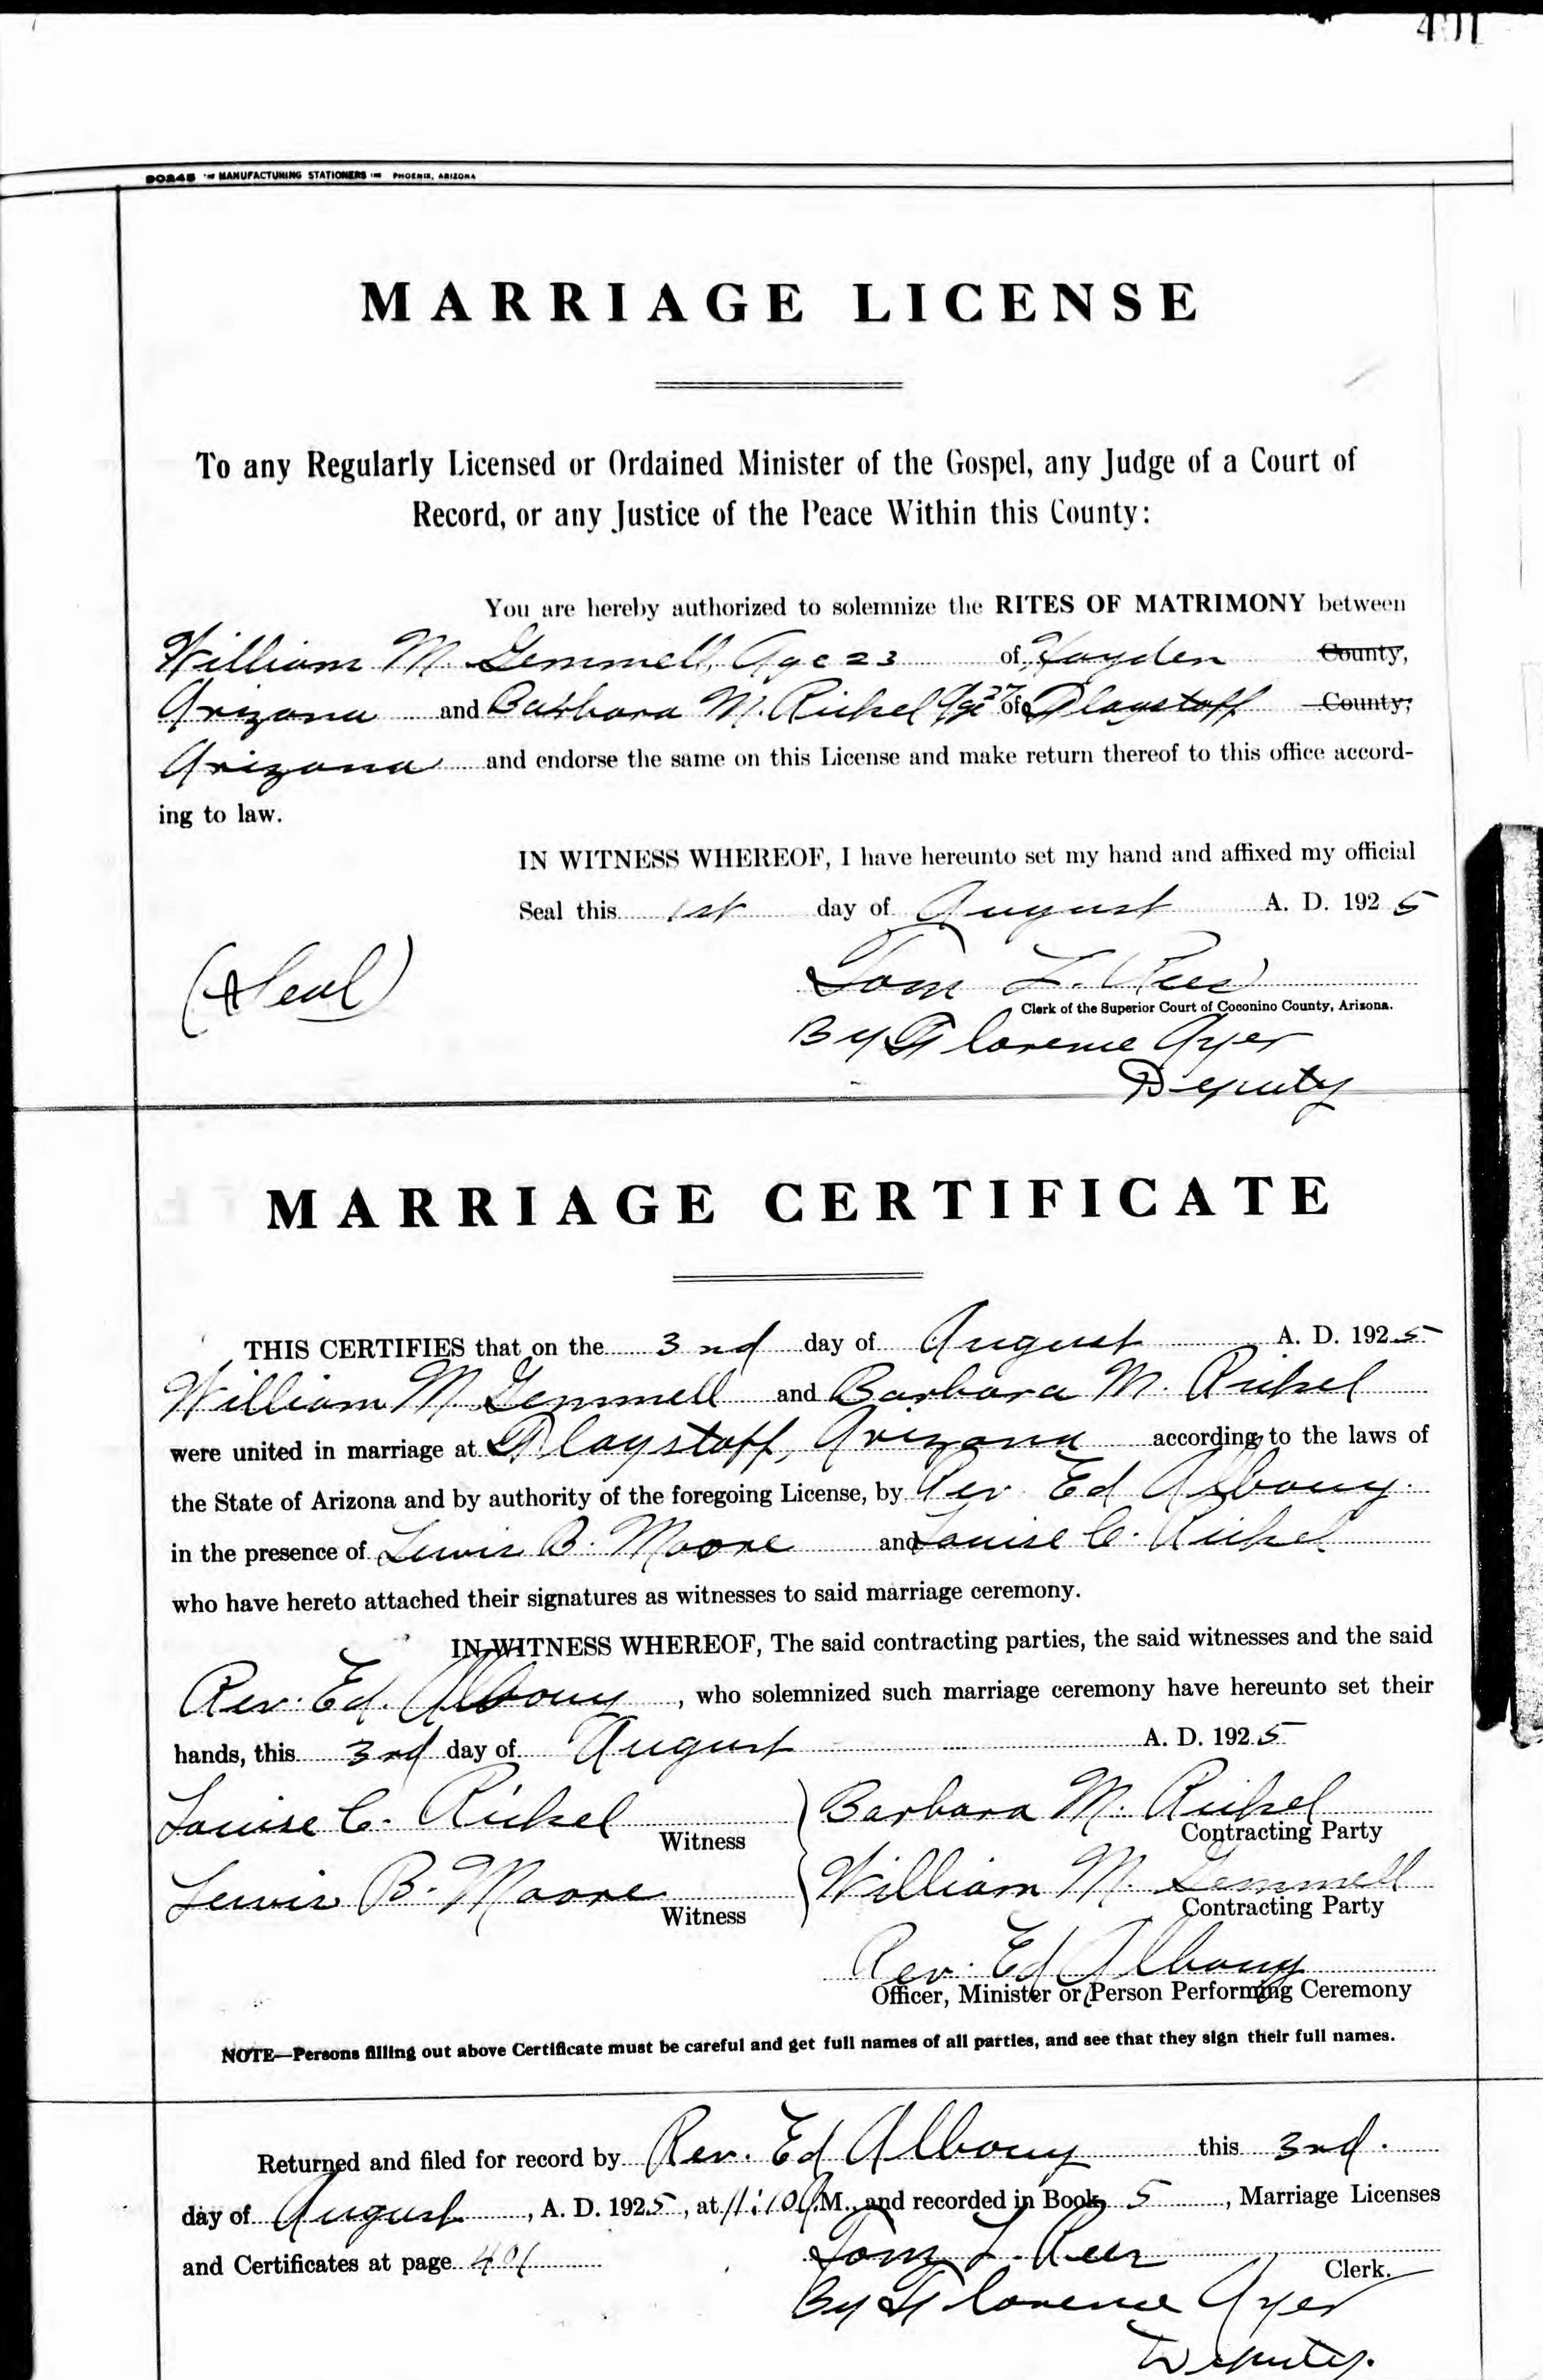 401
90245 MANUFACTURING STATIONERS INC PHOENIX, ARIZONA
MARRIAGE LICENSE
To any Regularly Licensed or Ordained Minister of the Gospel, any Judge of a Court of
Record, or any Justice of the Peace Within this County:
You are hereby authorized to solemnize the RITES OF MATRIMONY between
William M. Gemmell, Age 23 of Hayden County,
Arizona and Barbara M. Rickel Age 27 of Flagstaff County;
Arizona and endorse the same on this License and make return thereof to this office accord-
ing to law.
IN WITNESS WHEREOF, I have hereunto set my hand and affixed my official
Seal this 1st day of August A. D. 1925
(Seal)
Tom L. Rees
Clerk of the Superior Court of Coconino County, Arizona.
By Florence Ayer
Deputy
MARRIAGE CERTIFICATE
THIS CERTIFIES that on the 3nd day of August A. D. 1925
William M. Gemmell and Barbara M. Rickel
were united in marriage at Flagstaff, Arizona according to the laws of
the State of Arizona and by authority of the foregoing License, by Rev Ed Albouy.
in the presence of Lewis B. Moore and Louise C. Rickel
who have hereto attached their signatures as witnesses to said marriage ceremony.
IN WITNESS WHEREOF, The said contracting parties, the said witnesses and the said
Rev. Ed. Albouy, who solemnized such marriage ceremony have hereunto set their
hands, this 3rd day of August A. D. 1925
Louise C. Rickel Barbara M. Rickel
Witness Contracting Party
Lewis B. Moore William M. Gemmell
Witness Contracting Party
Rev. Ed Albouy
Officer, Minister or Person Performing Ceremony
NOTE—Persons filling out above Certificate must be careful and get full names of all parties, and see that they sign their full names.
Returned and filed for record by Rev. Ed Albouy this 3rd.
day of August, A. D. 1925, at 11:10 A.M., and recorded in Book 5, Marriage Licenses
and Certificates at page 401 Tom L. Rees
Clerk.
By Florence Ayer
Deputy.